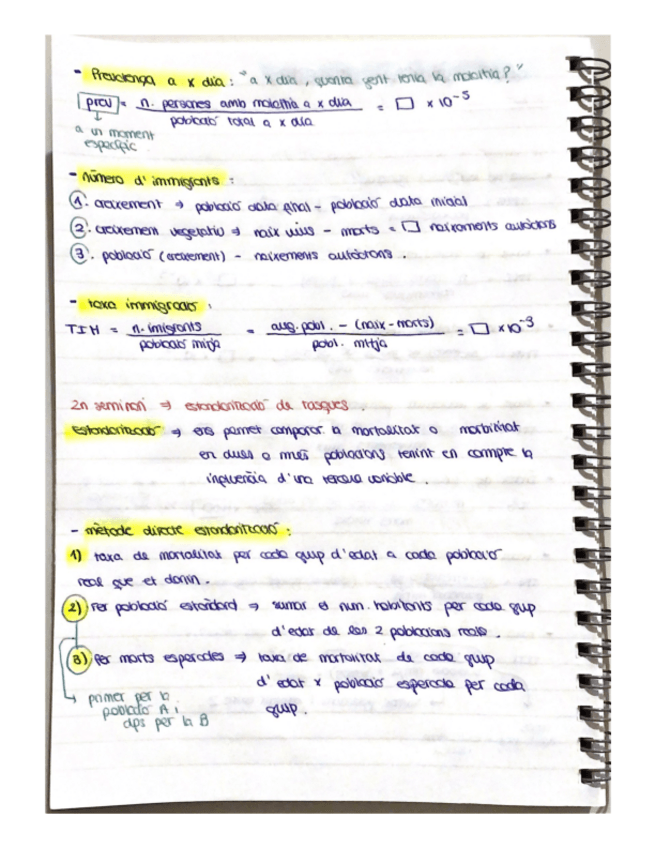 - Prevalença a x dia: "a x dia, quanta gent tenia la malaltia?"
prev = n. persones amb malaltia a x dia / població total a x dia = □ × 10⁻⁵
a un moment
específic
- número d'immigrants:
1. creixement ⇒ població data final - població data inicial
2. creixement vegetatiu ⇒ naix vius - morts = □ naixements autòctons
3. població (creixement) - naixements autòctons.
- taxa immigració:
TIM = n. imigrants / població mitja = aug. pobl. - (naix - morts) / pobl. mitja = □ × 10⁻³
2n seminari ⇒ estandarització de tasques.
Estandarització ⇒ ens permet comparar la mortalitat o morbiditat
en dues o més poblacions tenint en compte la
influència d'una tercera variable.
- mètode directe estandarització:
1) taxa de mortalitat per cada grup d'edat a cada població
real que et donin.
2) Fer població estandard ⇒ sumar el num. habitants per cada grup
d'edat de les 2 poblacions reals.
3) Fer morts esperades ⇒ taxa de mortalitat de cada grup
d'edat x població esperada per cada
grup.
primer per la
població A i
dps per la B